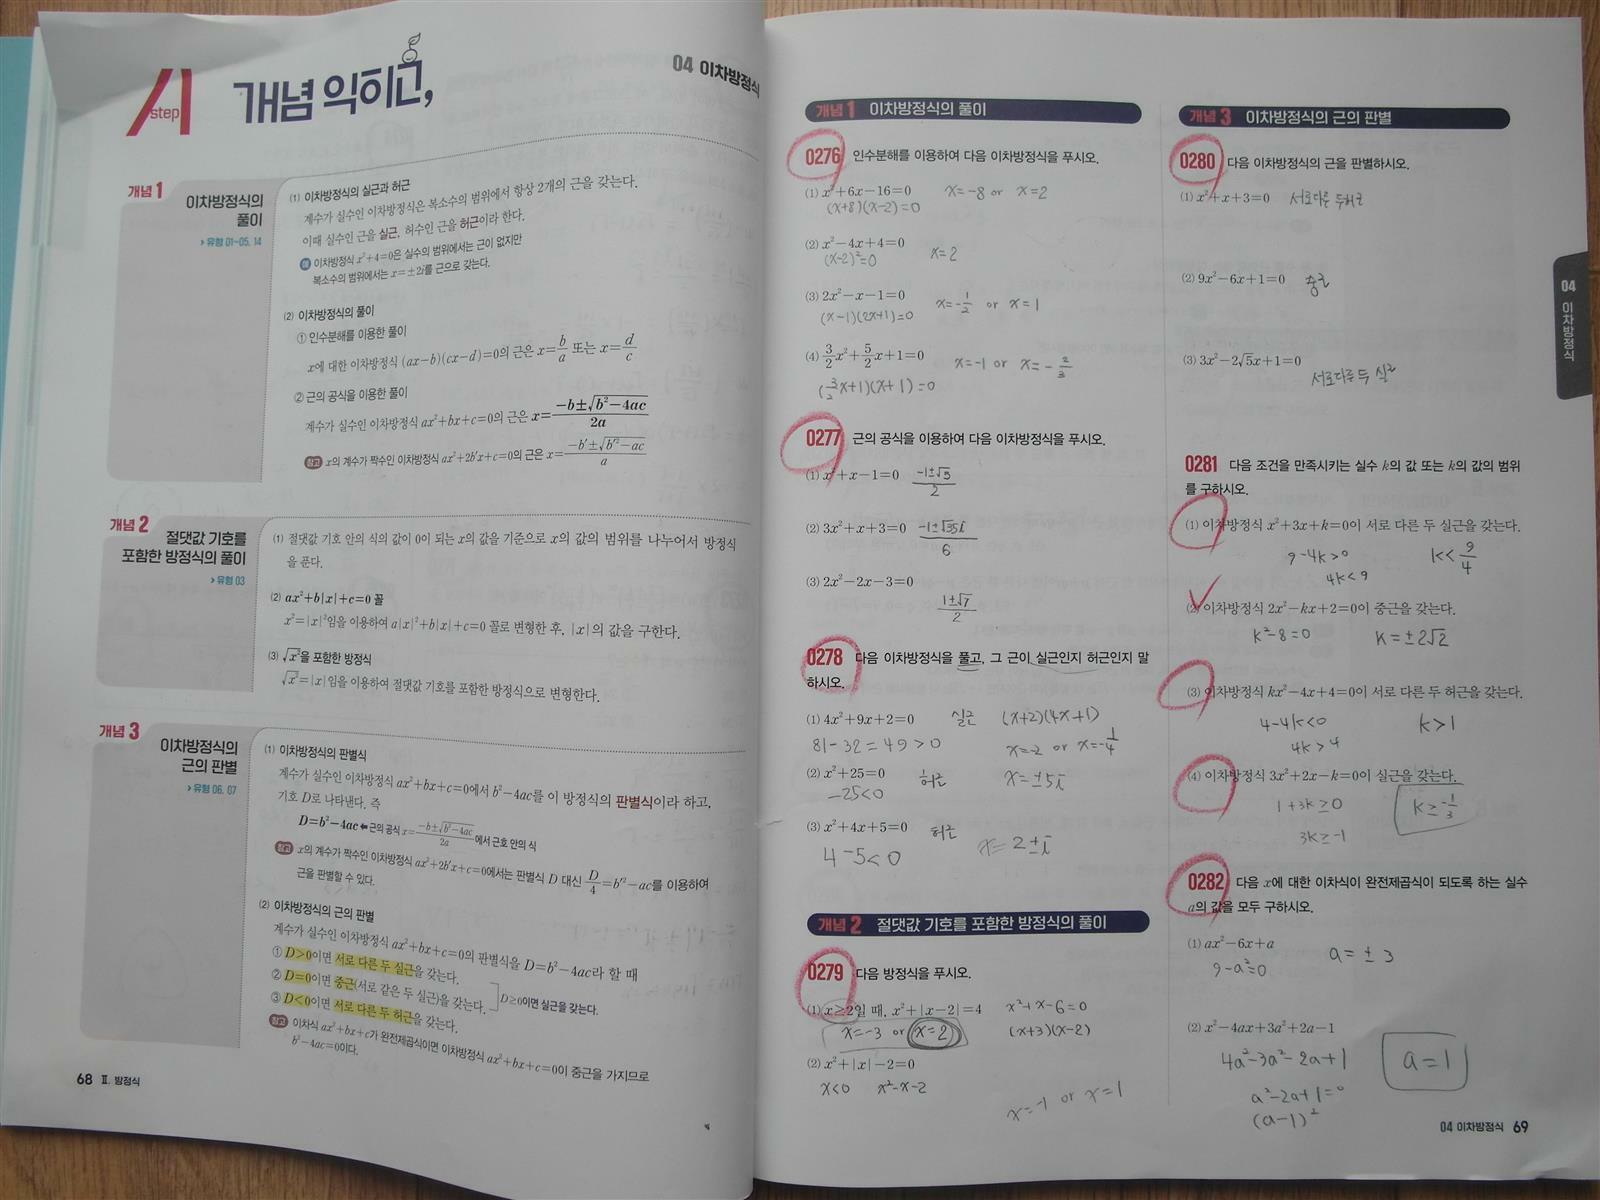 A step
개념 익히고,
04 이차방정식
개념 1
이차방정식의
풀이
> 유형 01~05, 14
(1) 이차방정식의 실근과 허근
계수가 실수인 이차방정식은 복소수의 범위에서 항상 2개의 근을 갖는다.
이때 실수인 근을 실근, 허수인 근을 허근이라 한다.
예 이차방정식 x²+4=0은 실수의 범위에서는 근이 없지만
복소수의 범위에서는 x=±2i를 근으로 갖는다.
(2) 이차방정식의 풀이
① 인수분해를 이용한 풀이
x에 대한 이차방정식 (ax-b)(cx-d)=0의 근은 x=b/a 또는 x=d/c
② 근의 공식을 이용한 풀이
계수가 실수인 이차방정식 ax²+bx+c=0의 근은 x=(-b±√(b²-4ac))/2a
참고 x의 계수가 짝수인 이차방정식 ax²+2b'x+c=0의 근은 x=(-b'±√(b'²-ac))/a
개념 2
절댓값 기호를
포함한 방정식의 풀이
> 유형 03
(1) 절댓값 기호 안의 식의 값이 0이 되는 x의 값을 기준으로 x의 값의 범위를 나누어서 방정식
을 푼다.
(2) ax²+b|x|+c=0 꼴
x²=|x|²임을 이용하여 a|x|²+b|x|+c=0 꼴로 변형한 후, |x|의 값을 구한다.
(3) √x²을 포함한 방정식
√x²=|x|임을 이용하여 절댓값 기호를 포함한 방정식으로 변형한다.
개념 3
이차방정식의
근의 판별
> 유형 06, 07
(1) 이차방정식의 판별식
계수가 실수인 이차방정식 ax²+bx+c=0에서 b²-4ac를 이 방정식의 판별식이라 하고,
기호 D로 나타낸다. 즉
D=b²-4ac ← 근의 공식 x=(-b±√(b²-4ac))/2a에서 근호 안의 식
참고 x의 계수가 짝수인 이차방정식 ax²+2b'x+c=0에서는 판별식 D 대신 D/4=b'²-ac를 이용하여
근을 판별할 수 있다.
(2) 이차방정식의 근의 판별
계수가 실수인 이차방정식 ax²+bx+c=0의 판별식을 D=b²-4ac라 할 때
① D>0이면 서로 다른 두 실근을 갖는다.
② D=0이면 중근(서로 같은 두 실근)을 갖는다.
D≥0이면 실근을 갖는다.
③ D<0이면 서로 다른 두 허근을 갖는다.
참고 이차식 ax²+bx+c가 완전제곱식이면 이차방정식 ax²+bx+c=0이 중근을 가지므로
b²-4ac=0이다.
68 Ⅱ. 방정식
개념 1 이차방정식의 풀이
0276 인수분해를 이용하여 다음 이차방정식을 푸시오.
(1) x²+6x-16=0 x=-8 or x=2
(x+8)(x-2)=0
(2) x²-4x+4=0 x=2
(x-2)²=0
(3) 2x²-x-1=0 x=-1/2 or x=1
(x-1)(2x+1)=0
(4) 3/2x²+5/2x+1=0 x=-1 or x=-2/3
(3/2x+1)(x+1)=0
0277 근의 공식을 이용하여 다음 이차방정식을 푸시오.
(1) x²+x-1=0 (-1±√5)/2
(2) 3x²+x+3=0 (-1±√35i)/6
(3) 2x²-2x-3=0
(1±√7)/2
0278 다음 이차방정식을 풀고, 그 근이 실근인지 허근인지 말
하시오.
(1) 4x²+9x+2=0 실근 (x+2)(4x+1)
81-32=49>0 x=-2 or x=-1/4
(2) x²+25=0 허근 x=±5i
-25<0
(3) x²+4x+5=0 허근 x=2±i
4-5<0
개념 2 절댓값 기호를 포함한 방정식의 풀이
0279 다음 방정식을 푸시오.
(1) x≥2일 때, x²+|x-2|=4 x²+x-6=0
x=-3 or x=2 (x+3)(x-2)
(2) x²+|x|-2=0
x<0 x²-x-2
x=-1 or x=1
개념 3 이차방정식의 근의 판별
0280 다음 이차방정식의 근을 판별하시오.
(1) x²+x+3=0 서로다른 두허근
(2) 9x²-6x+1=0 중근
(3) 3x²-2√5x+1=0
서로다른 두 실근
0281 다음 조건을 만족시키는 실수 k의 값 또는 k의 값의 범위
를 구하시오.
(1) 이차방정식 x²+3x+k=0이 서로 다른 두 실근을 갖는다.
9-4k>0 k<9/4
4k<9
(2) 이차방정식 2x²-kx+2=0이 중근을 갖는다.
k²-8=0 k=±2√2
(3) 이차방정식 kx²-4x+4=0이 서로 다른 두 허근을 갖는다.
4-4k<0 k>1
4k>4
(4) 이차방정식 3x²+2x-k=0이 실근을 갖는다.
1+3k≥0 k≥-1/3
3k≥-1
0282 다음 x에 대한 이차식이 완전제곱식이 되도록 하는 실수
a의 값을 모두 구하시오.
(1) ax²-6x+a a=±3
9-a²=0
(2) x²-4ax+3a²+2a-1
4a²-3a²-2a+1 a=1
a²-2a+1=0
(a-1)²
04 이차방정식
04 이차방정식 69